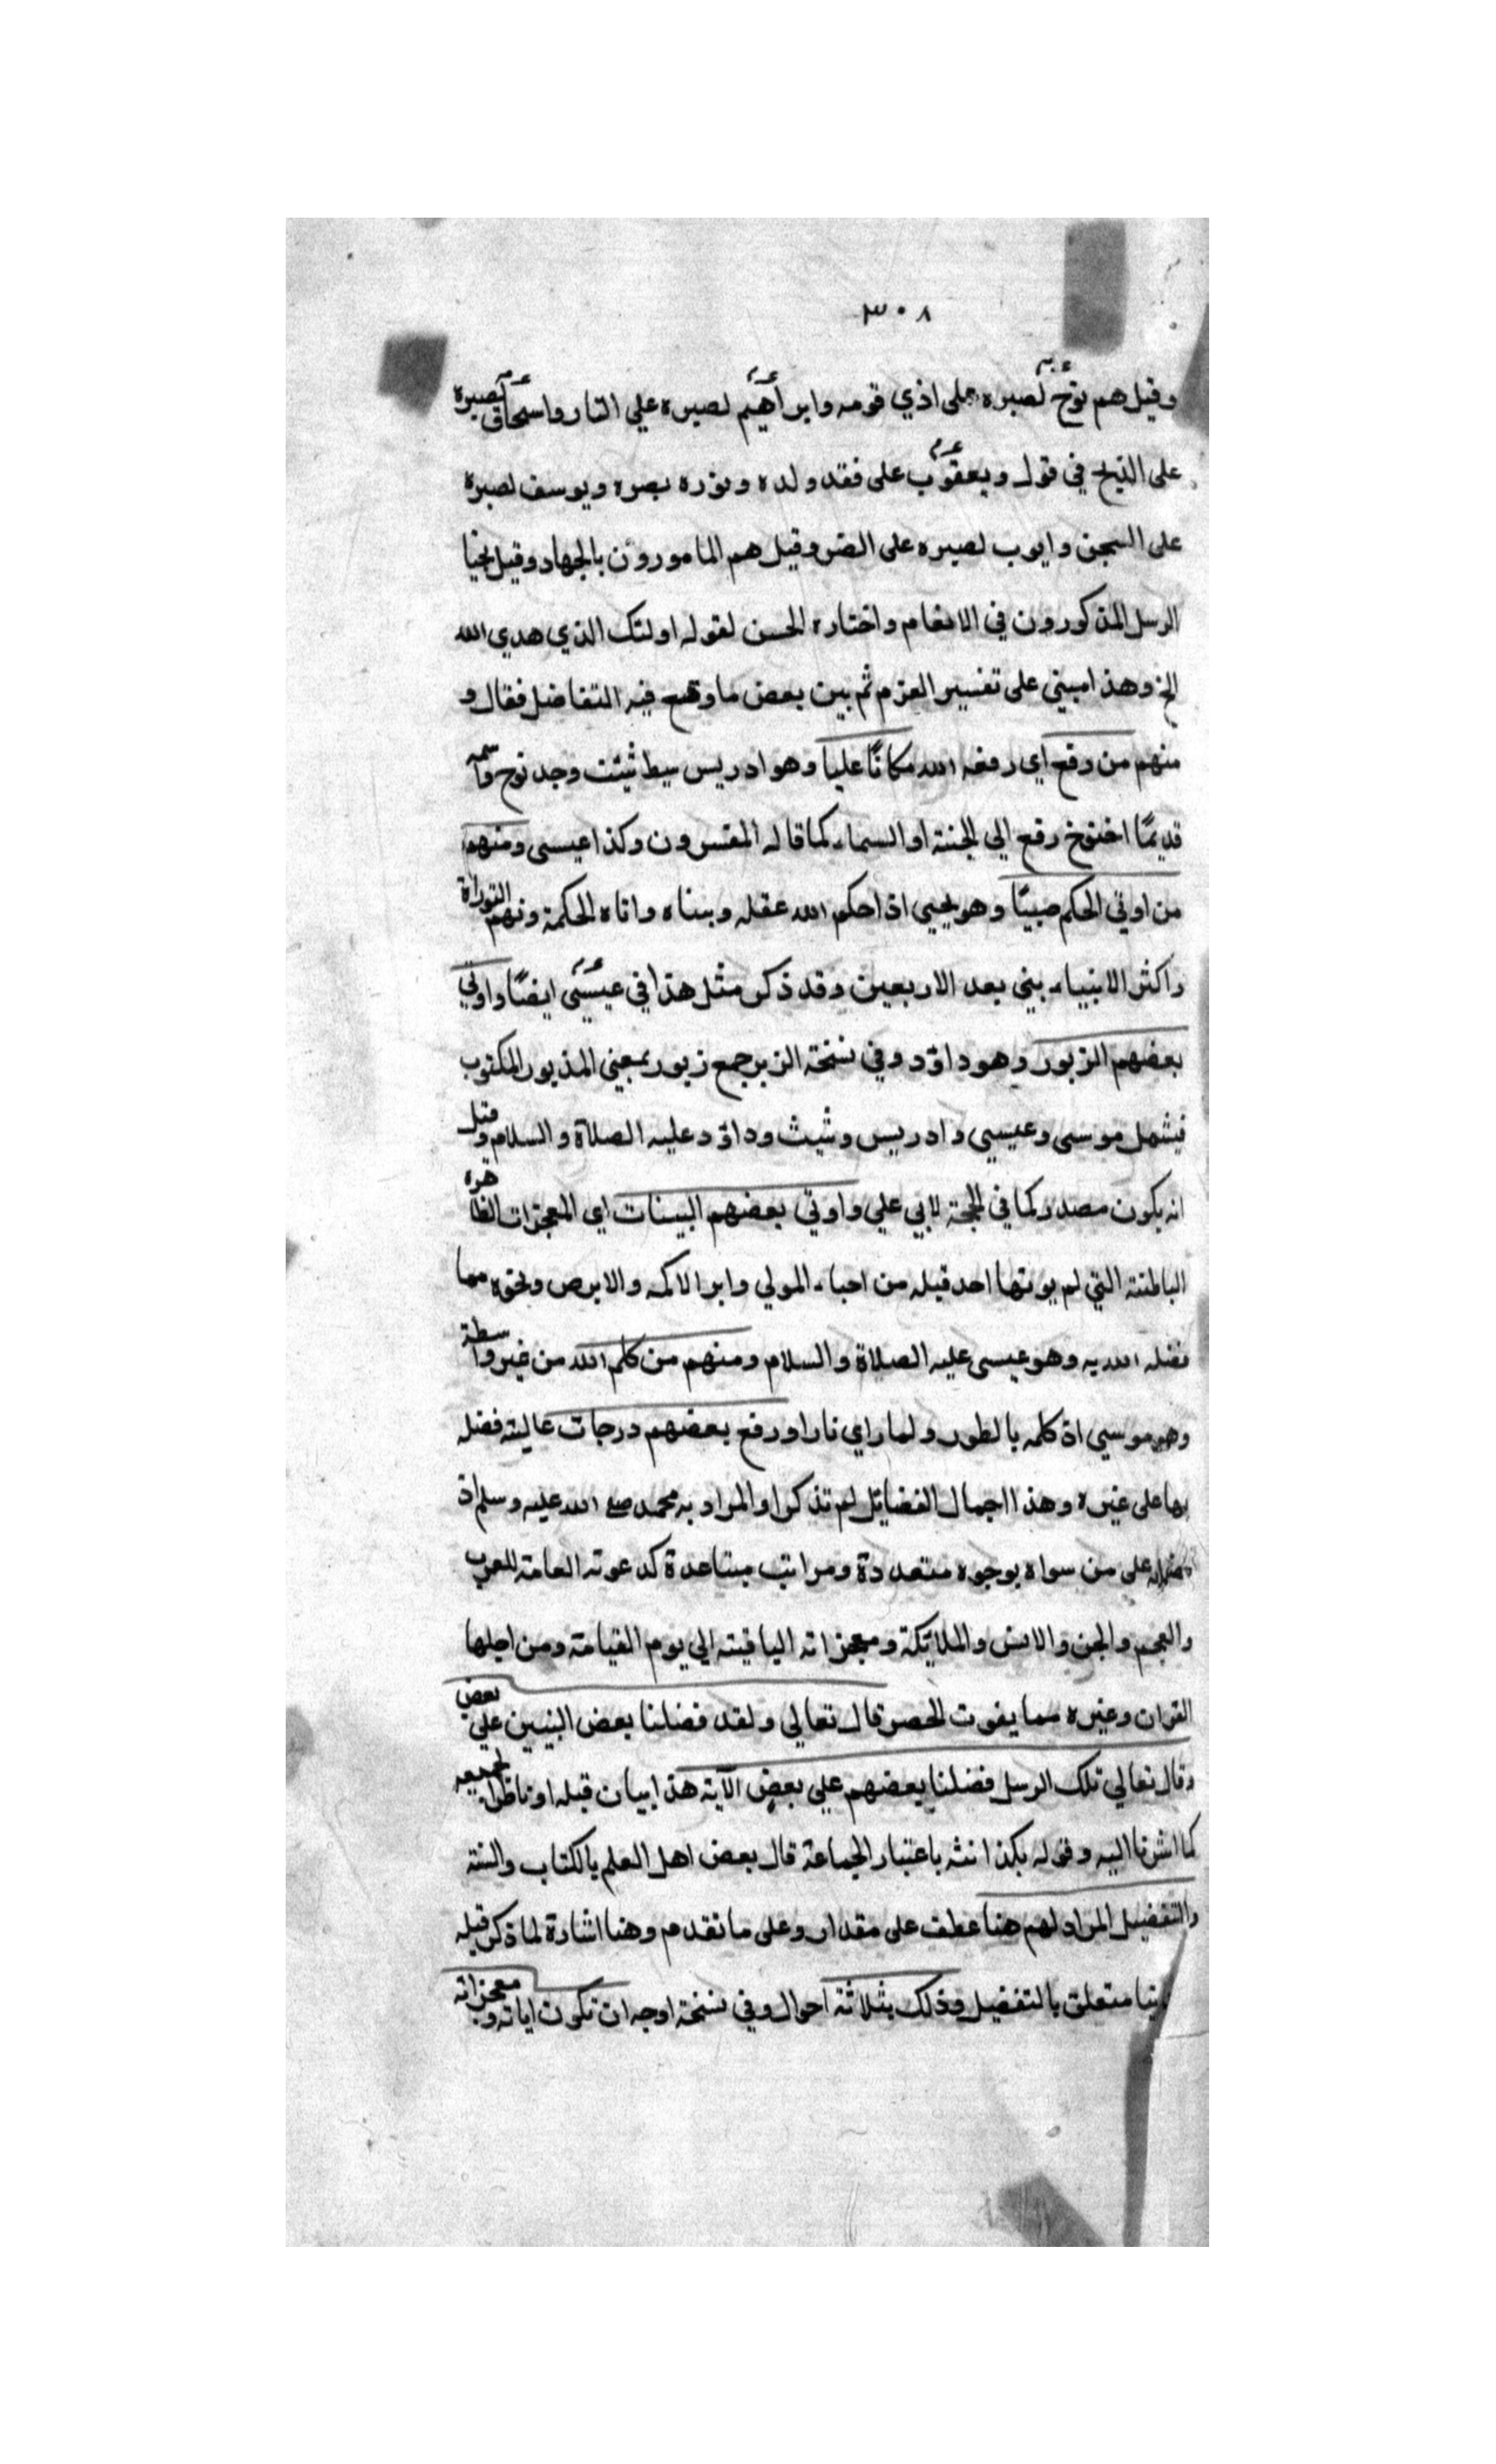 ٣٠٨
وقيل هم نوح لصبره على اذي قومه وابراهيم لصبره علي النار واسحاق لصبره
على الذبح في قول ويعقوب على فقد ولده ونوره بصره ويوسف لصبره
على السجن وايوب لصبره على الضر وقيل هم المامورون بالجهاد وقيل نجبا
الرسل المذكورون في الانعام واختاره الحسن لقوله اولئك الذي هدي الله
الخ وهذا مبني على تفسير العزم ثم بين بعض ما وقع فيه التفاضل فقال و
منهم من رفع اي رفعه الله مكانًا عليا وهو ادريس سبط شيث وجد نوح واسمه
قديمًا اخنوخ رفع الي الجنة او السماء كما قاله المفسرون وكذا عيسى ومنهم
من اوتي الحكم صبيًا وهو يحيي اذ احكم الله عقله وبناه واتاه الحكمة وفهم التوراة
واكثر الانبياء بني بعد الاربعين وقد ذكر مثل هذا في عيسى ايضًا واوتي
بعضهم الزبور وهو داؤد وفي نسخة الزبر جمع زبور بمعني المذبور المكتوب
فيشمل موسى وعيسي وادريس وشيث وداؤد عليه الصلاة والسلام وقيل
انه يكون مصدر كما في الحجة لابي علي واوتي بعضهم البينات اي المعجزات الظاهره
الباطنة التي لم يوتها احد قبله من احياء المولي وابر الاكمه والابرص ونحوه مما
فضله الله به وهو عيسى عليه الصلاة والسلام ومنهم من كلم الله من غير واسطة
وهو موسي اذ كلمه بالطور ولما راي نارا ورفع بعضهم درجات عالية فضله
بها على غيره وهذا اجمال الفضائل لم تذكر او المراد به محمد صلى الله عليه وسلم اذ
على من سواه بوجوه متعددة ومراتب متباعدة كدعوته العامة للعرب
والعجم والجن والانس والملائكة ومعجزاته الباقية الي يوم القيامة ومن اجلها
القران وغيره مما يفوت الحصر قال تعالي ولقد فضلنا بعض النبيين علي بعض
وقال تعالي تلك الرسل فضلنا بعضهم علي بعض الآية هذا بيان قبله او ناظر لجميعه
كما اشرنا اليه وقوله بكذا انثه باعتبار الجماعة قال بعض اهل العلم بالكتاب والسنة
والتفضيل المراد لهم هنا عطف على مقدار وعلى ما تقدم وهنا اشارة لما ذكر قبله
متعلق بالتفضيل وذلك بثلاثة احوال وفي نسخة اوجه ان تكون اياته ومعجزاته